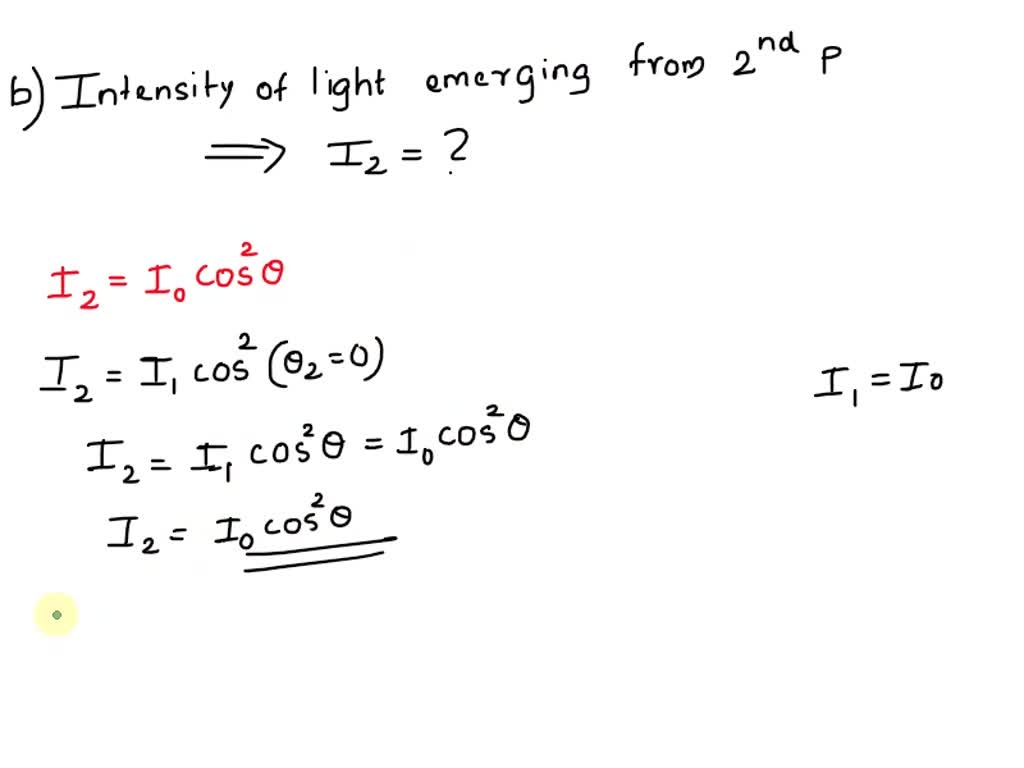 b) Intensity of light emerging from 2nd P
⟹ I₂ = ?
I₂ = I₀ cos²θ
I₂ = I₁ cos² (θ₂=0)
I₁ = I₀
I₂ = I₁ cos²θ = I₀ cos²θ
I₂ = I₀ cos²θ